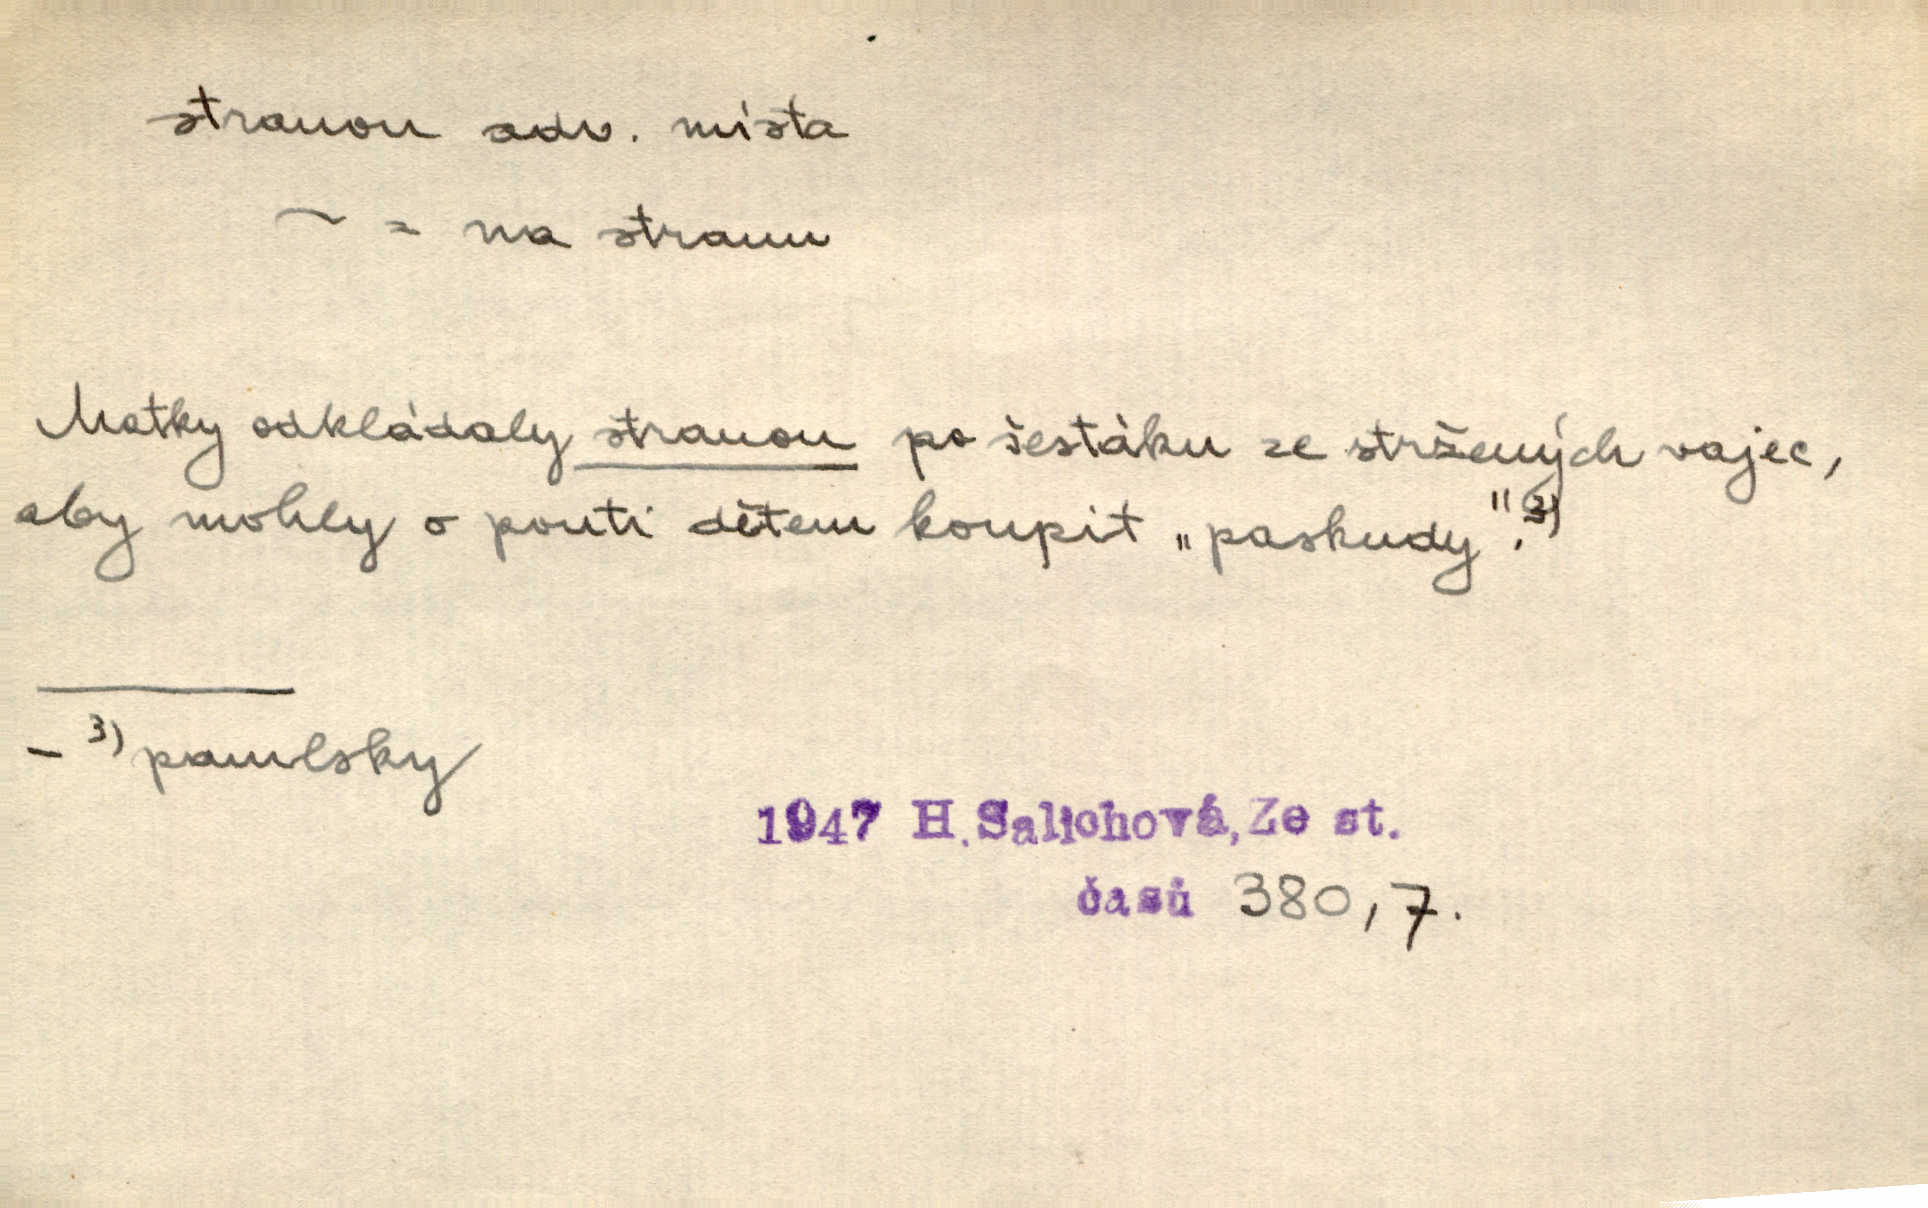 stranou adv. místa
~ = na stranu
Matky odkládaly stranou po šestáku ze stržených vajec,
aby mohly o pouti dětem koupit „paskudy".³⁾
– ³⁾ pamlsky
1947 H.Salichová,Ze st.
časů 380,7.